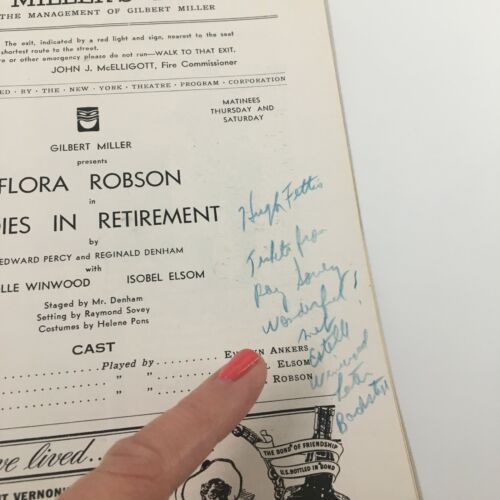 THE MANAGEMENT OF GILBERT MILLER
The exit, indicated by a red light and sign, nearest to the seat
shortest route to the street.
re or other emergency please do not run—WALK TO THAT EXIT.
JOHN J. McELLIGOTT, Fire Commissioner
ED · BY · THE · NEW · YORK · THEATRE · PROGRAM · CORPORATION
MATINEES
THURSDAY AND
SATURDAY
GILBERT MILLER
presents
FLORA ROBSON
in
DIES IN RETIREMENT
by
EDWARD PERCY and REGINALD DENHAM
with
LLE WINWOOD ISOBEL ELSOM
Staged by Mr. Denham
Setting by Raymond Sovey
Costumes by Helene Pons
CAST
Played by EVELYN ANKERS
" " L ELSOM
" " ROBSON
Hugh Fettis
Tickets from
Ray Sovey
Wonderful!
met
Estelle
Winwood
later
Backstage
ve lived..
T VERNON
THE BOND OF FRIENDSHIP
U.S. BOTTLED IN BOND